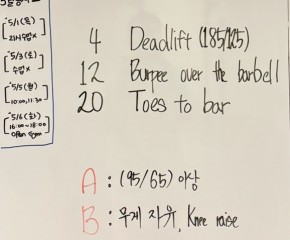 5/1(목)
21시 수업 X
5/3(토)
수업 X
5/5(월)
10:00, 11:30
5/6(화)
16:00~18:00
open gym
4 Deadlift (185/125)
12 Burpee over the barbell
20 Toes to bar
A : (95/65) 이상
B : 무게 자유, Knee raise